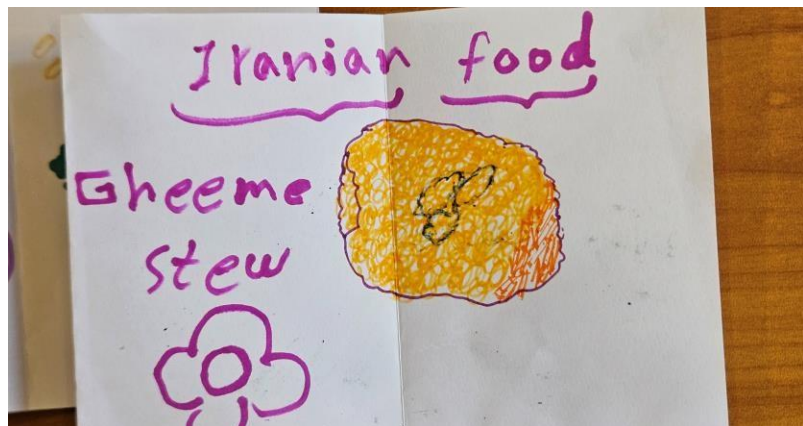 Iranian food
Gheeme
stew